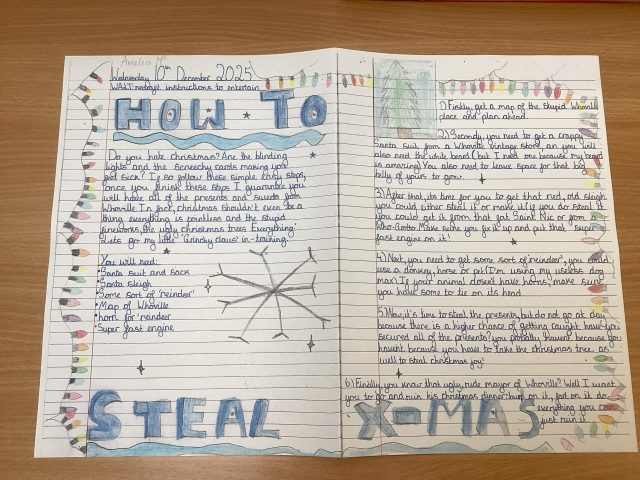 Amelia Mc
Wednesday 10th December 2025
WALT: redraft instructions to entertain
HOW TO
Do you hate christmas? Are the blinding
lights and the screechy carols making you
feel sick? If so follow these simple easy steps,
once you finish these steps I guarantee you
will have all of the presents and sweets from
Whoville. In fact, christmas shouldn't even be a
thing everything is pointless and the stupid
fireworks, the ugly christmas trees Everything!
Lets go my little 'Grinchy claus' in-training.
You will need:
• Santa suit and sack
• Santa sleigh
• Some sort of 'reindeer'
• Map of Whoville
• horn for reindeer
• Super fast engine
STEAL
1) Firstly, get a map of the stupid Whoville
place and plan ahead.
2) Secondly, you need to get a crappy
Santa suit from a Whoville vintage store, an you will
also need the white beard (but I need one because my beard
is amazing) You also need to leave space for that big
belly of yours to grow.
3) After that, its time for you to get that red, old sleigh
you could either steal it or make it. If you do steal it
you could get it from that fat Saint Nic or from a
Who-Grotto. Make sure you fix it up and put that super
fast engine on it!
4) Next, you need to get some sort of reindeer, you could
use a donkey, horse or pif (I'm using my useless dog
max). If your animal doesn't have horns, make sure
you have some to tie on its head.
5) Now, it's time to steal the presents, but do not go at day
because there is a higher chance of getting caught have you
secured all of the presents? you probally havent because you
havent because you have to take the christmas tree as
well to steal christmas joy!
6) Finally, you know that ugly, rude mayor of Whoville? Well I want
you to go and ruin his christmas dinner: burp on it, fart on it do
everything you can
just ruin it
X-MAS